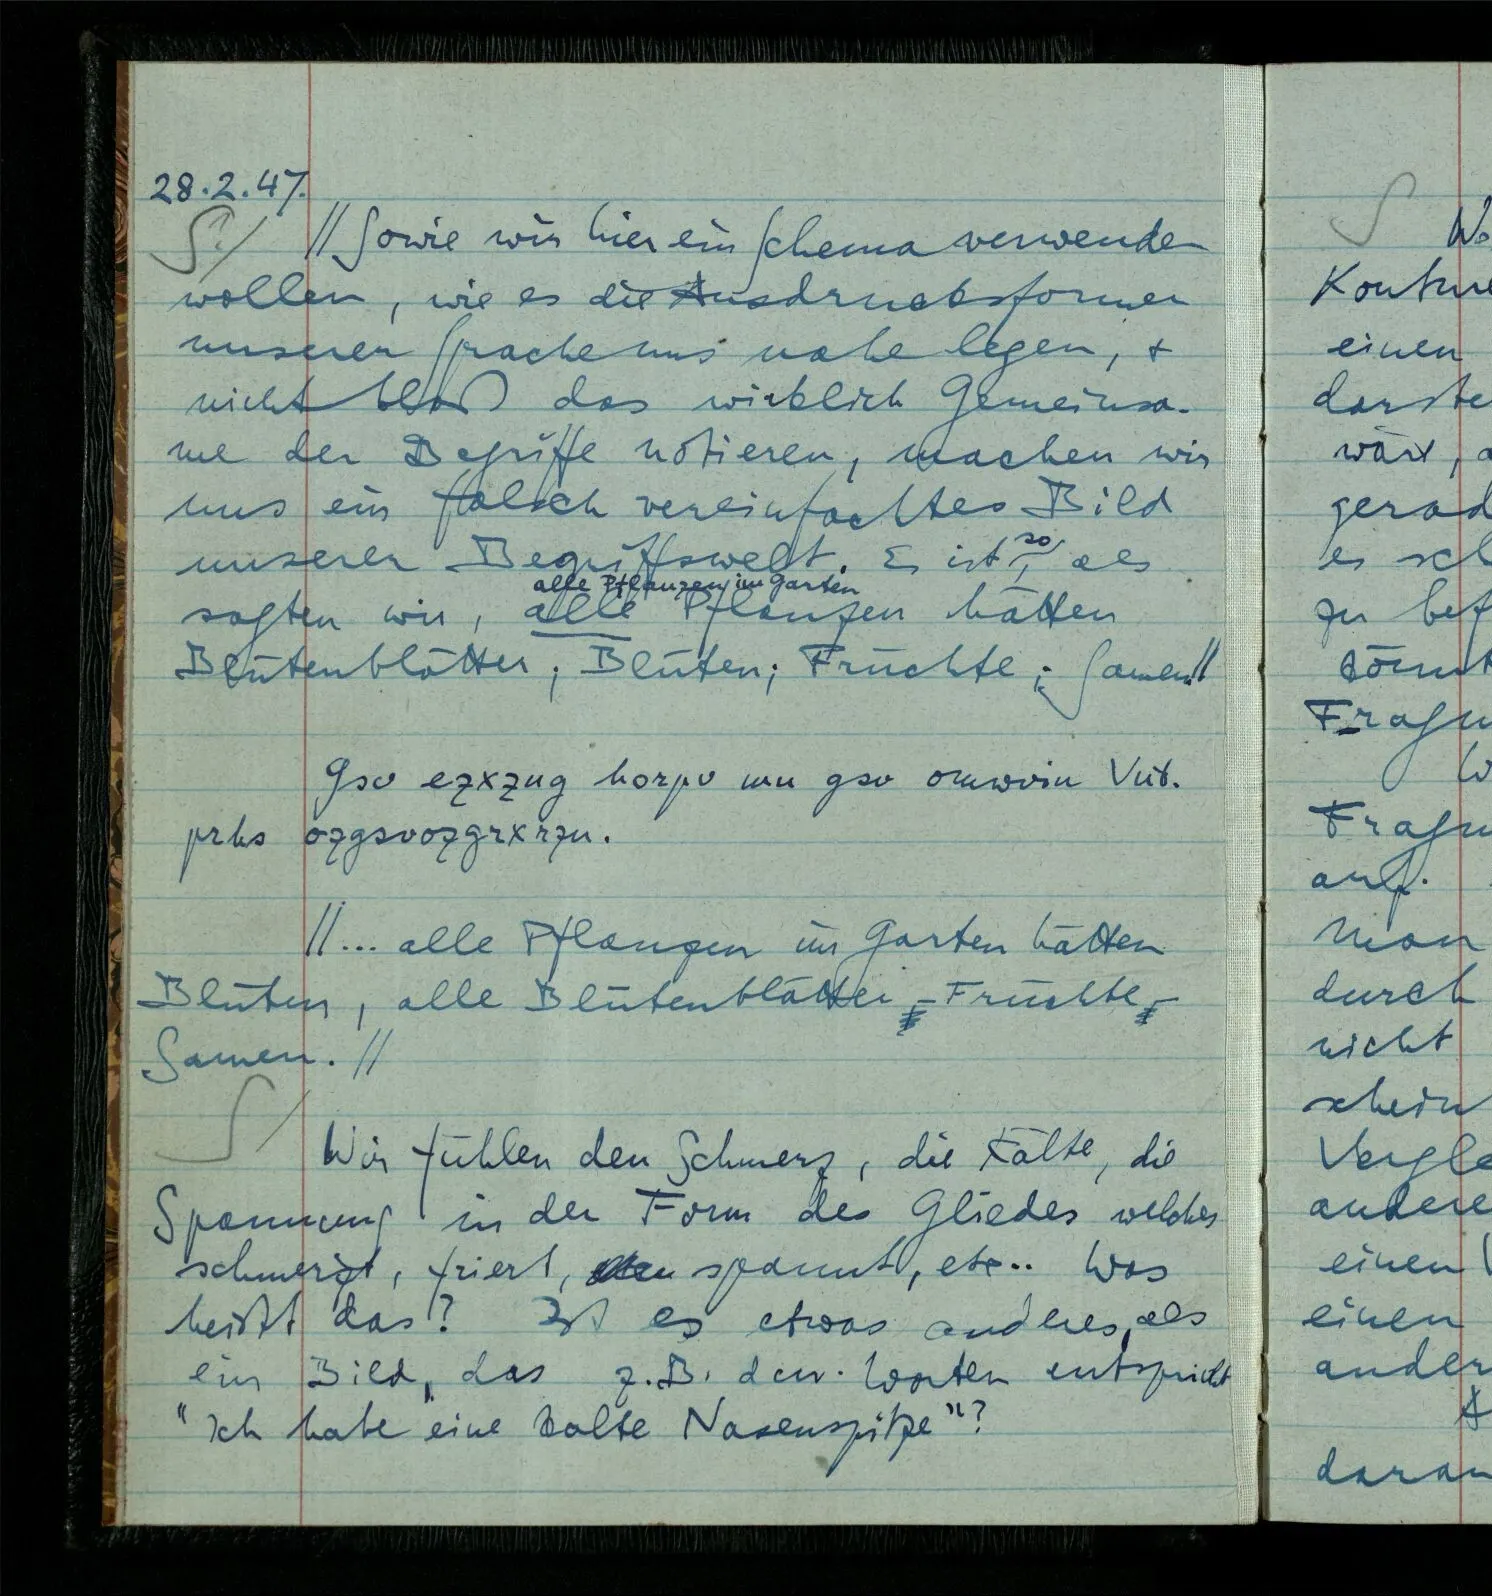 28.2.47.
S?/ // Sowie wir hier ein Schema verwenden
wollen, wie es die Ausdrucksformen
unserer Sprache uns nahe legen, +
nicht bloß das wirklich Gemeinsa-
me der Begriffe notieren, machen wir
uns ein falsch vereinfachtes Bild
unserer Begriffswelt. Es ist so, als
alle Pflanzen im Garten
sagten wir, alle Pflanzen hätten
Blütenblätter; Blüten; Früchte; Samen.//
Gsv ezxzng horpv mu gsv omwvin Vnt-
prhs ozgsvozgrxrzn.
//... alle Pflanzen im Garten hätten
Blüten, alle Blütenblätter, – Früchte, –
Samen. //
S /
Wir fühlen den Schmerz, die Kälte, die
Spannung in der Form des Gliedes welches
schmerzt, friert, spannt, etc.. Was
heißt das? Ist es etwas anderes, als
ein Bild, das z.B. den Worten entspricht
"Ich habe eine kalte Nasenspitze"?
S
Kontur
einen
darste
wäre, a
gerad
es sch
zu bef
könnt
Fragm
Fragm
auf.
Man
durch
nicht
schein
Vergle
andere
einen V
einen
ander
daran